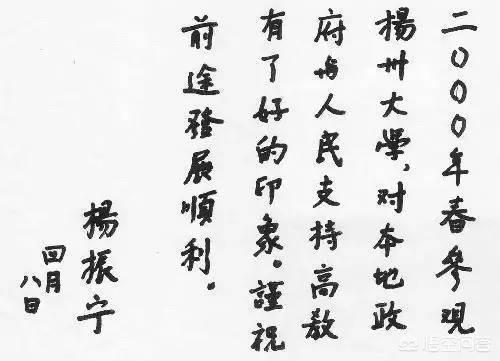 二〇〇〇年春參覌
楊州大學,对本地政
府与人民支持高教
有了好的印象。謹祝
前途發展順利.
楊振宁
四月
八日
悟空问答